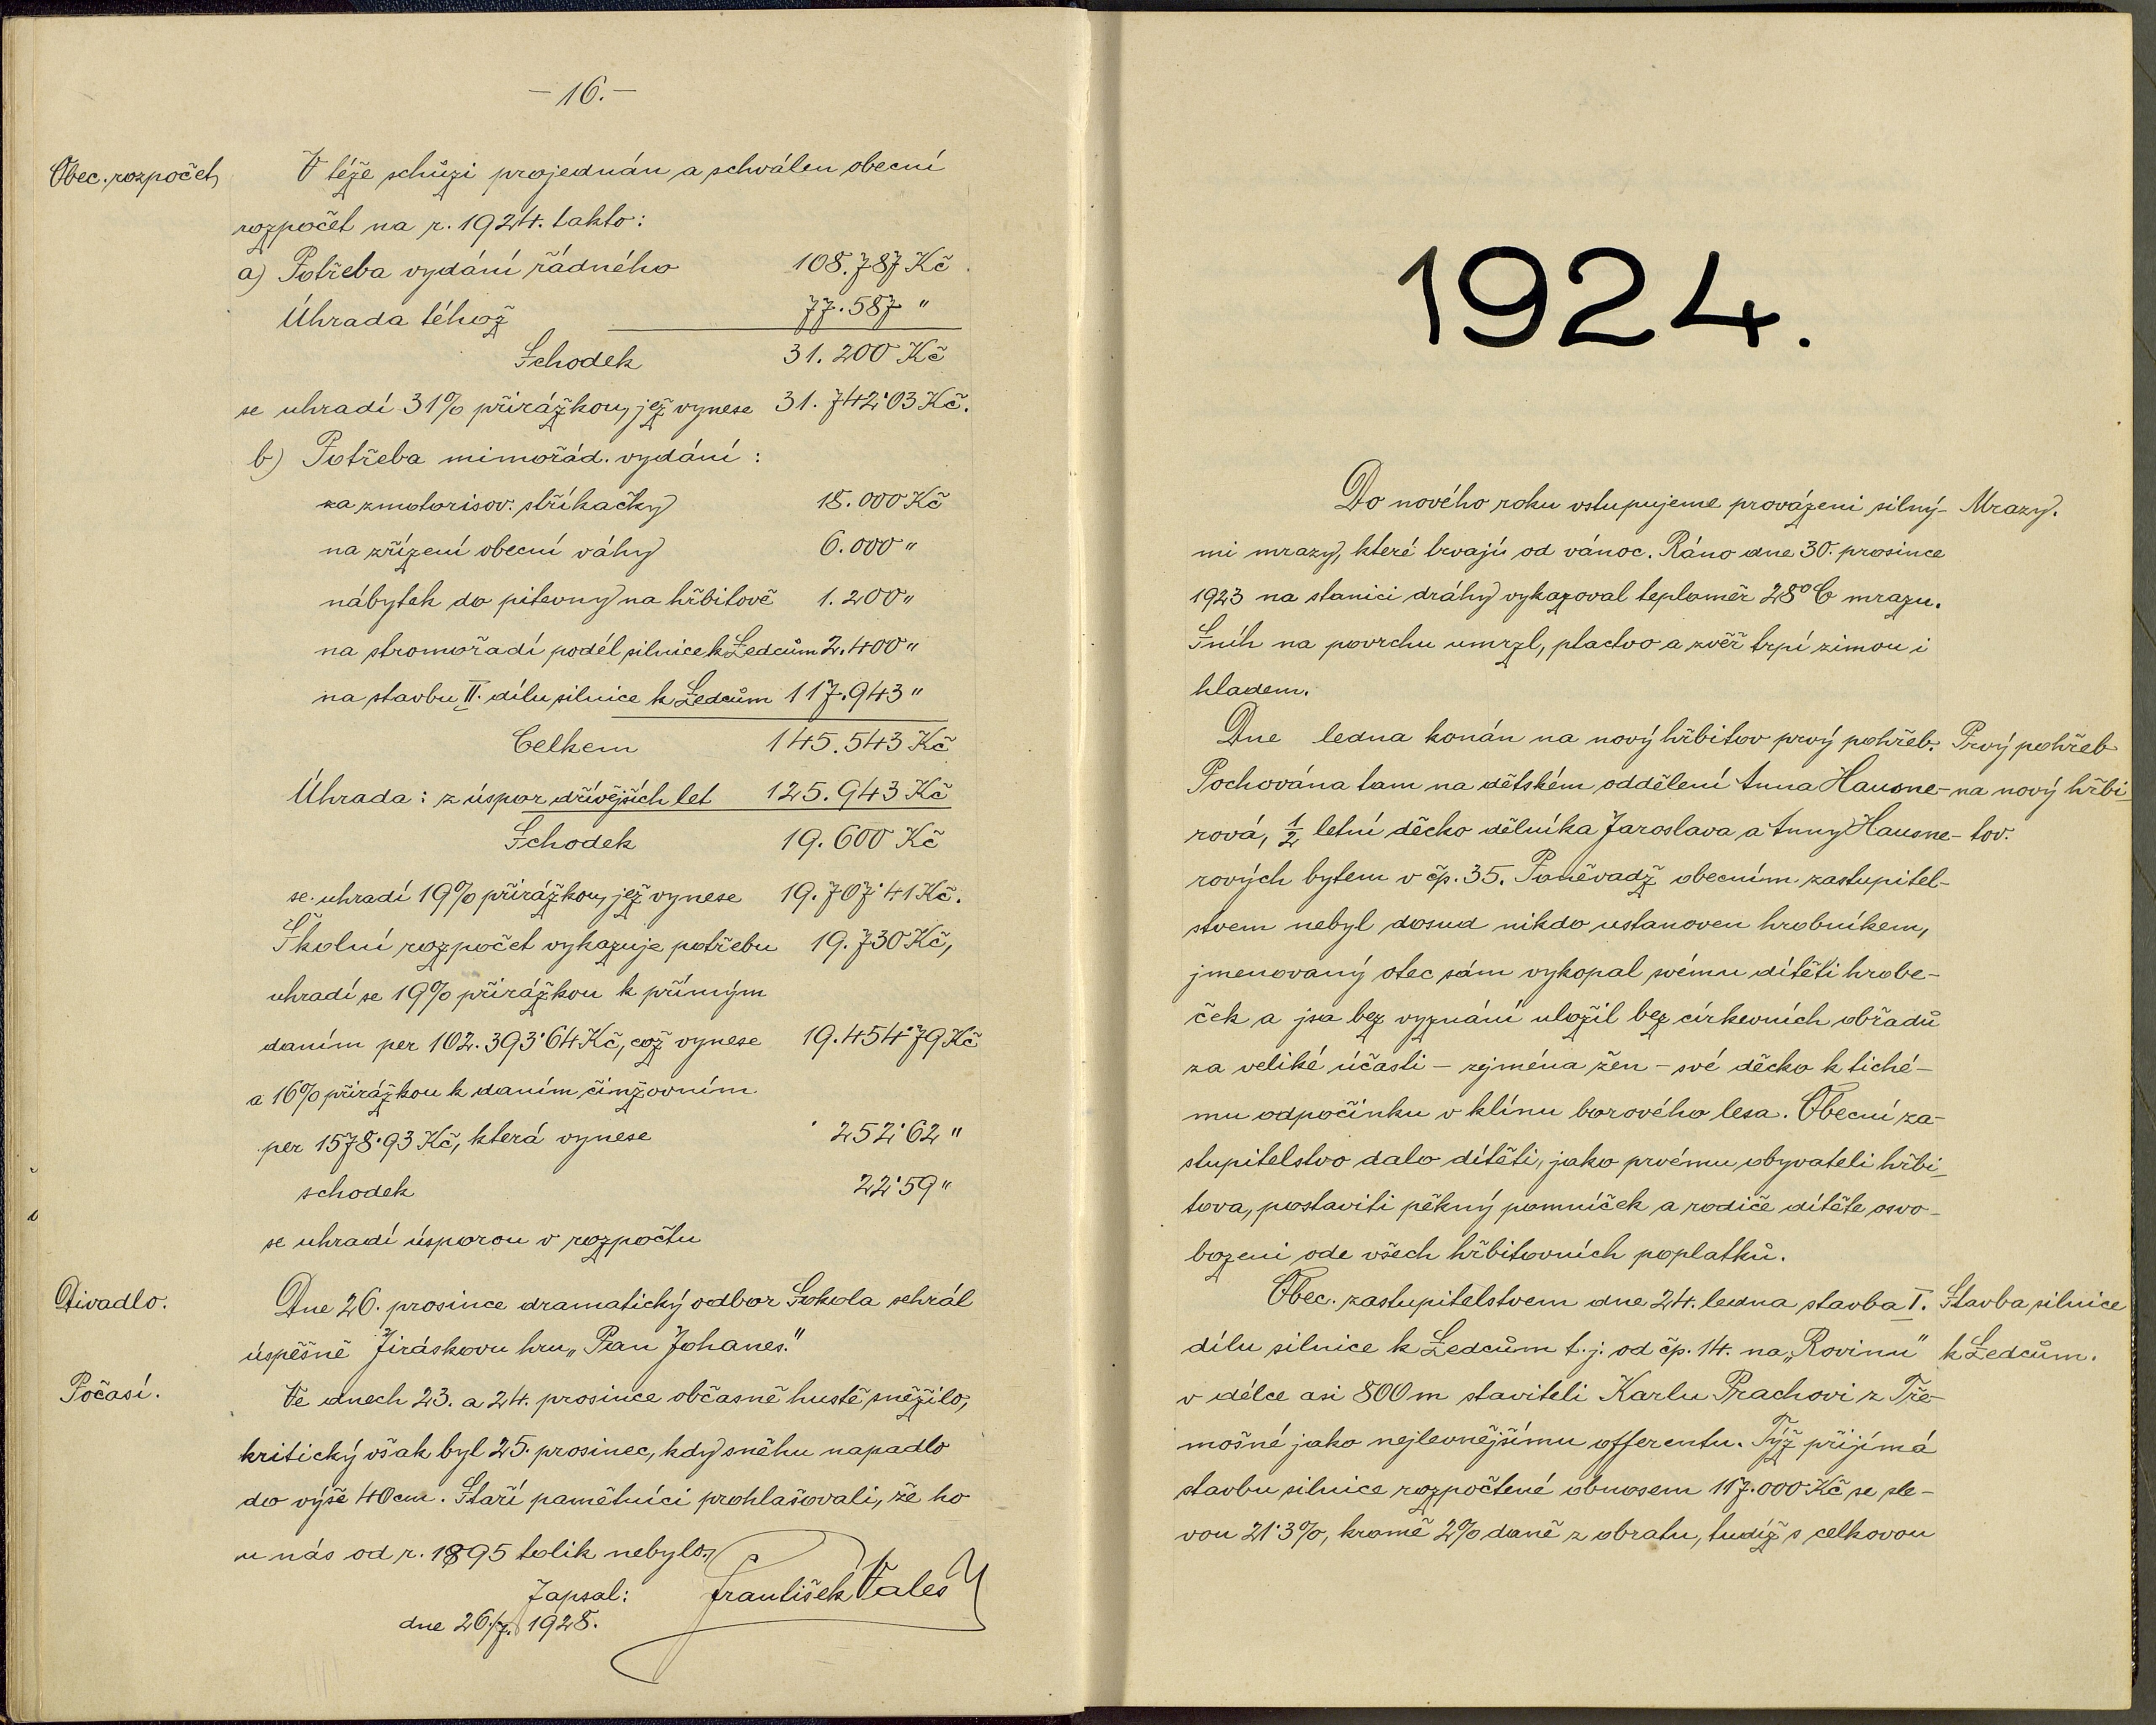 - 16. -
Obec. rozpočet
V téže schůzi projednán a schválen obecní
rozpočet na r. 1924. takto:
a) Potřeba vydání řádného 108.787 Kč
Úhrada téhož 77.587 "
Schodek 31.200 Kč
se uhradí 31% přirážkou, jež vynese 31.742·03 Kč.
b) Potřeba mimořád. vydání:
za zmotorisov. stříkačky 18.000 Kč
na zřízení obecní váhy 6.000 "
nábytek do pitevny na hřbitově 1.200 "
na stromořadí podél silnice k Ledcům 2.400 "
na stavbu II. dílu silnice k Ledcům 117.943 "
Celkem 145.543 Kč
Úhrada: z úspor dřívějších let 125.943 Kč
Schodek 19.600 Kč
se uhradí 19% přirážkou, jež vynese 19.707·41 Kč.
Školní rozpočet vykazuje potřebu 19.730 Kč,
uhradí se 19% přirážkou k přímým
daním per 102.393·64 Kč, což vynese 19.454·79 Kč
a 16% přirážkou k daním činžovním
per 1578·93 Kč, která vynese 252·62 "
schodek 22·59 "
se uhradí úsporou v rozpočtu
Divadlo.
Dne 26. prosince dramatický odbor Sokola sehrál
úspěšně Jiráskovu hru „Pan Johanes."
Počasí.
Ve dnech 23. a 24. prosince občasně hustě sněžilo,
kritický však byl 25. prosinec, kdy sněhu napadlo
do výše 40 cm. Staří pamětníci prohlašovali, že ho
u nás od r. 1895 tolik nebylo.
Zapsal: František Valeš
dne 26/7. 1928.
1924.
Do nového roku vstupujeme provázeni silný-
Mrazy.
mi mrazy, které trvají od vánoc. Ráno dne 30. prosince
1923 na stanici dráhy vykazoval teploměr 28° C mrazu.
Sníh na povrchu umrzl, ptactvo a zvěř trpí zimou i
hladem.
Dne ledna konán na nový hřbitov prvý pohřeb.
Prvý pohřeb
Pochována tam na dětském oddělení Anna Hausne-
na nový hřbi-
rová, 1/2 letní děcko dělníka Jaroslava a Anny Hausne-
tov.
rových bytem v čp. 35. Poněvadž obecním zastupitel-
stvem nebyl dosud nikdo ustanoven hrobníkem,
jmenovaný otec sám vykopal svému dítěti hrobe-
ček a jsa bez vyznání uložil bez církevních obřadů
za veliké účasti - zejména žen - své děcko k tiché-
mu odpočinku v klínu borového lesa. Obecní za-
stupitelstvo dalo dítěti, jako prvému obyvateli hřbi-
tova, postaviti pěkný pomníček a rodiče dítěte osvo-
bozeni ode všech hřbitovních poplatků.
Obec. zastupitelstvem dne 24. ledna stavba I.
Stavba silnice
dílu silnice k Ledcům t.j. od čp. 14. na „Rovinu"
k Ledcům.
v délce asi 800 m staviteli Karlu Prachovi z Tře-
mošné jako nejlevnějšímu offerentu. Týž přijímá
stavbu silnice rozpočtené obnosem 117.000 Kč se sle-
vou 21·3%, kromě 2% daně z obratu, tudíž s celkovou